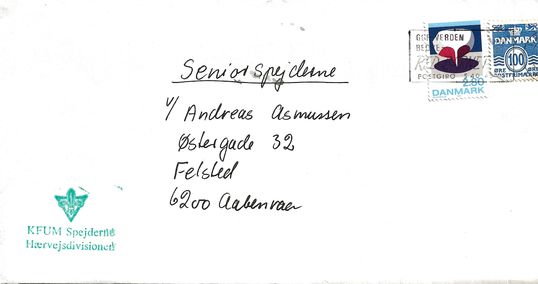 GØR VERDEN
DANMARK
100
ØRE
POSTGIRO
2.80
DANMARK
Seniorspejderne
v/ Andreas Asmussen
Østergade 32
Felsted
6200 Aabenraa
KFUM Spejderne
Hærvejsdivisionen